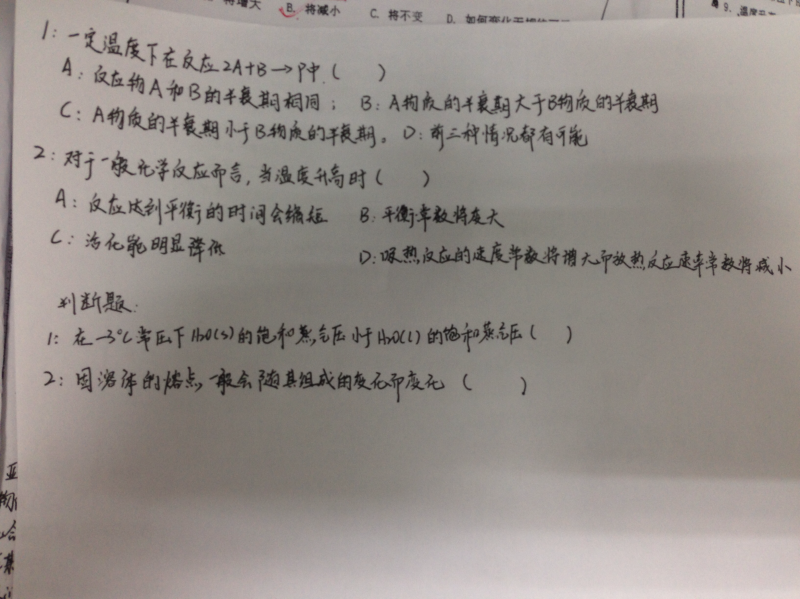 将增大 B. 将减小 C. 将不变 D. 如何变化
9、温度
1：一定温度下在反应2A+B→P中（ ）
A：反应物A和B的半衰期相同； B：A物质的半衰期大于B物质的半衰期
C：A物质的半衰期小于B物质的半衰期。D：前三种情况都有可能
2：对于一般化学反应而言，当温度升高时（ ）
A：反应达到平衡的时间会缩短 B：平衡常数将变大
C：活化能明显降低 D：吸热反应的速度常数将增大而放热反应速率常数将减小
判断题：
1：在-3°C常压下H2O(s)的饱和蒸气压小于H2O(l)的饱和蒸气压（ ）
2：固溶体的熔点一般会随其组成的变化而变化（ ）